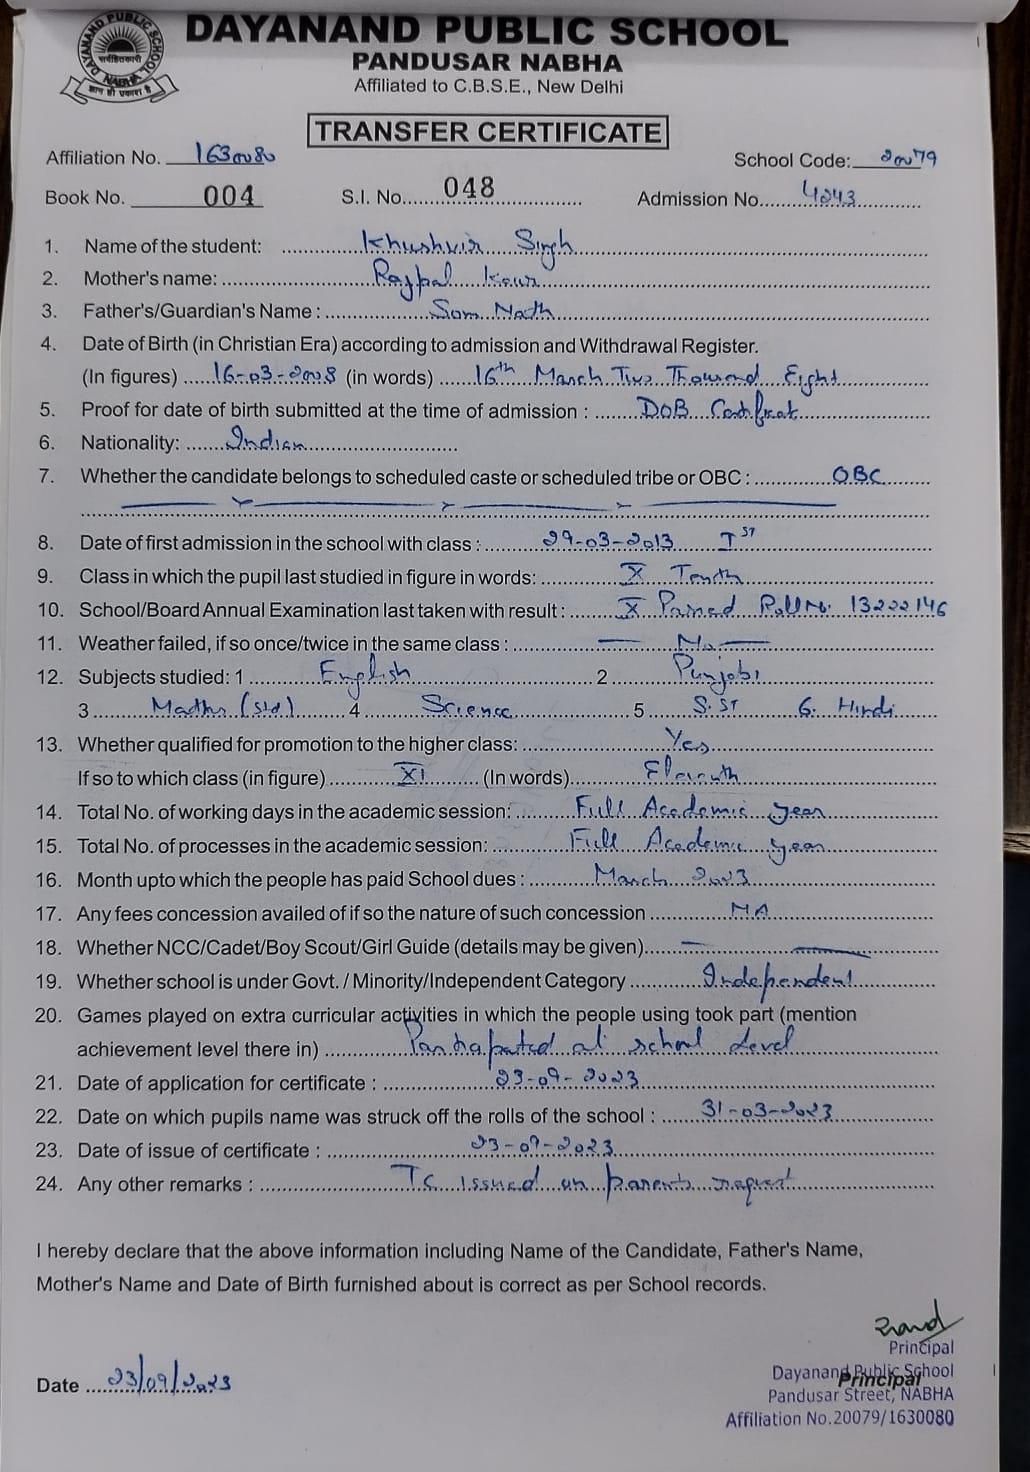 DAYANAND PUBLIC SCHOOL
DAYANAND PUBLIC SCHOOL
NABHA
PANDUSAR NABHA
Affiliated to C.B.S.E., New Delhi
TRANSFER CERTIFICATE
Affiliation No. 1630080 School Code: 20079
Book No. 004 S.I. No. 048 Admission No. 4243
1. Name of the student: Khushvir Singh
2. Mother's name: Rajpal Kaur
3. Father's/Guardian's Name : Som Nath
4. Date of Birth (in Christian Era) according to admission and Withdrawal Register.
(In figures) 16-03-2008 (in words) 16th March Two Thousand Eight
5. Proof for date of birth submitted at the time of admission : DOB Certificate
6. Nationality: Indian
7. Whether the candidate belongs to scheduled caste or scheduled tribe or OBC : OBC
8. Date of first admission in the school with class : 29-03-2013 IST
9. Class in which the pupil last studied in figure in words: X Tenth
10. School/Board Annual Examination last taken with result : X Passed Roll No. 13222146
11. Weather failed, if so once/twice in the same class : — No —
12. Subjects studied: 1 English 2 Punjabi
3 Maths (std) 4 Science 5 S.ST 6. Hindi
13. Whether qualified for promotion to the higher class: Yes
If so to which class (in figure) XI (In words) Eleventh
14. Total No. of working days in the academic session: Full Academic year
15. Total No. of processes in the academic session: Full Academic year
16. Month upto which the people has paid School dues : March 2023
17. Any fees concession availed of if so the nature of such concession NA
18. Whether NCC/Cadet/Boy Scout/Girl Guide (details may be given) — —
19. Whether school is under Govt. / Minority/Independent Category Independent
20. Games played on extra curricular activities in which the people using took part (mention
achievement level there in) Participated at school level
21. Date of application for certificate : 23-09-2023
22. Date on which pupils name was struck off the rolls of the school : 31-03-2023
23. Date of issue of certificate : 23-09-2023
24. Any other remarks : TC issued on parents request
I hereby declare that the above information including Name of the Candidate, Father's Name,
Mother's Name and Date of Birth furnished about is correct as per School records.
Principal
Dayanand Public School
Principal
Pandusar Street, NABHA
Affiliation No.20079/1630080
Date 23/09/2023